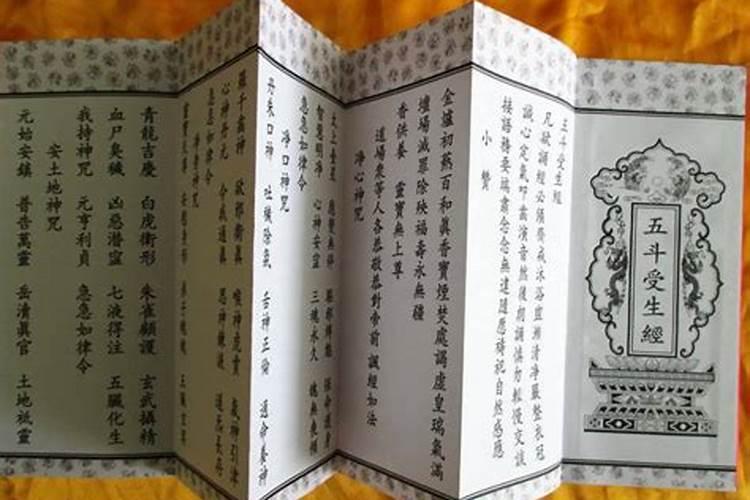 五斗受生經
五斗受生經
凡欲誦經必須齋戒沐浴盥漱清淨嚴整衣冠
誠心定氣叩齒演音然後朗誦慎勿輕慢交談
接語務要端肅念念無違隨應禱祀自然感應
小讚
金爐初爇百和真香寶煙焚處謁虛皇瑞氣滿
壇場滅罪除殃福壽永無疆
香供養 靈寶無上尊
道場眾等人各恭敬恭對帝前 諷經如法
淨心神咒
太上台星 應變無停 驅邪縛魅 保命護身
智慧明淨 心神安寧 三魂永久 魄無喪傾
急急如律令
淨口神咒
丹朱口神 吐穢除氛 舌神正倫 通命養神
羅千齒神 卻邪衛真 喉神虎賁 氣神引津
心神丹元 令我通真 思神鍊液 道炁長存
急急如律令
淨身神咒
靈寶天尊 安慰身形 弟子魂魄 五臟玄冥
青龍吉慶 白虎衛形 朱雀顧護 玄武攝精
血尸臭穢 凶惡潛寧 七液得注 五臟化生
我持神咒 元亨利貞 急急如律令
安土地神咒
元始安鎮 普告萬靈 岳瀆真官 土地祗靈